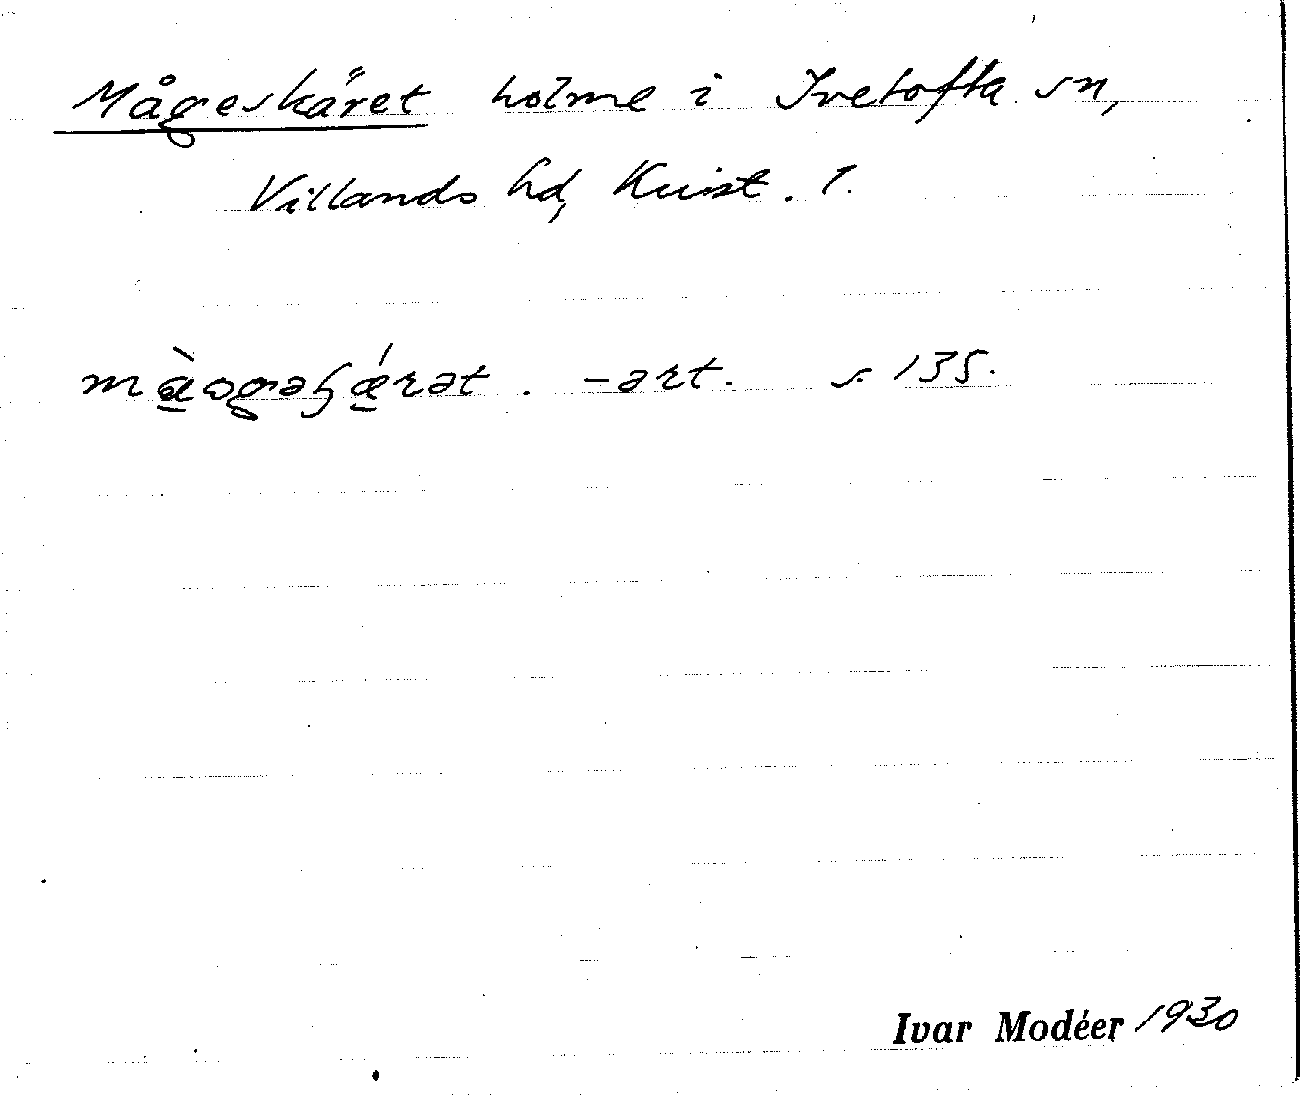 Mågeskäret holme i Ivetofta sn,
Villands hd, Krist. l.
-ərt. s. 135.
Ivar Modéer 1930